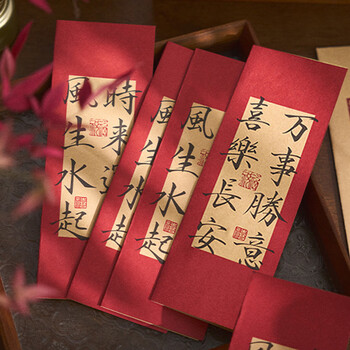 時来
風生水起
風生水起
風生水起
万事勝意
喜樂長安